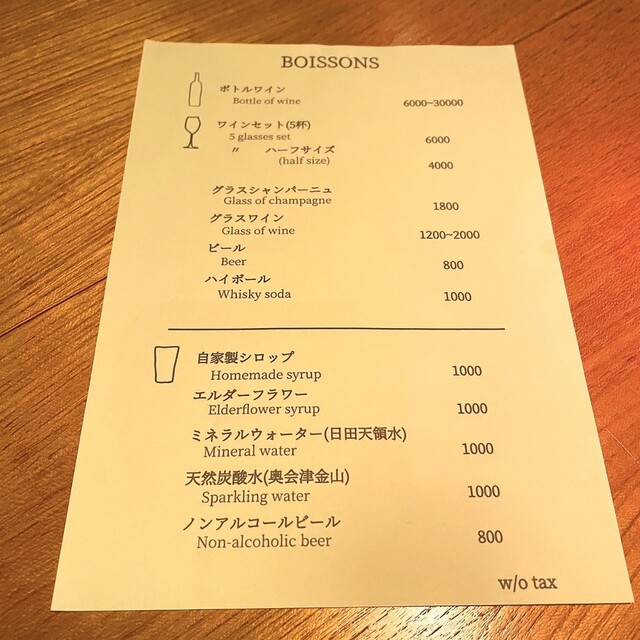 BOISSONS
ボトルワイン
Bottle of wine 6000~30000
ワインセット(5杯)
5 glasses set 6000
〃 ハーフサイズ
(half size) 4000
グラスシャンパーニュ
Glass of champagne 1800
グラスワイン
Glass of wine 1200~2000
ビール
Beer 800
ハイボール
Whisky soda 1000
自家製シロップ
Homemade syrup 1000
エルダーフラワー
Elderflower syrup 1000
ミネラルウォーター(日田天領水)
Mineral water 1000
天然炭酸水(奥会津金山)
Sparkling water 1000
ノンアルコールビール
Non-alcoholic beer 800
w/o tax